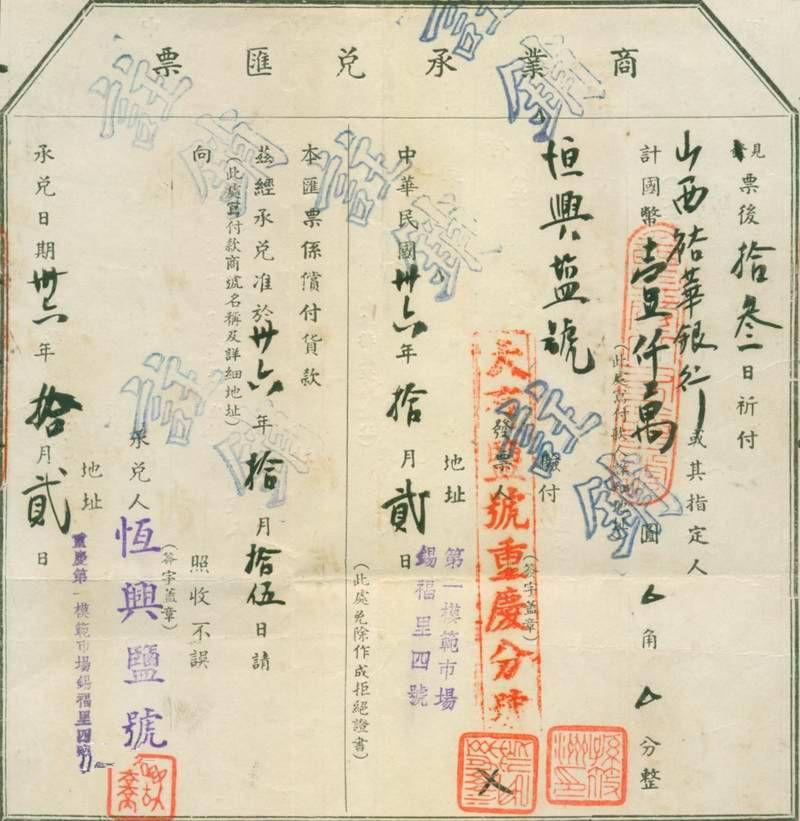 商業承兌匯票
見票後拾叁日祈付
山西裕華銀行或其指定人
計國幣壹仟萬圓厶角厶分整
恒興盐號
(此處寫付款人詳細地址)
驗付
發票人
(簽字蓋章)
天
興號重慶分號
地址
第一模範市場
錫福里四號
中華民國卅六年拾月貳日
(此處免除作成拒絕證書)
本匯票係償付貨款
茲經承兌准於卅六年拾月拾伍日請
(此處寫付款商號名稱及詳細地址)
向
照收不誤
承兌人
(簽字蓋章)
恆興鹽號
地址
重慶第一模範市場錫福里四號
承兌日期卅六年拾月貳日
註銷
註銷
註銷
註銷
註銷